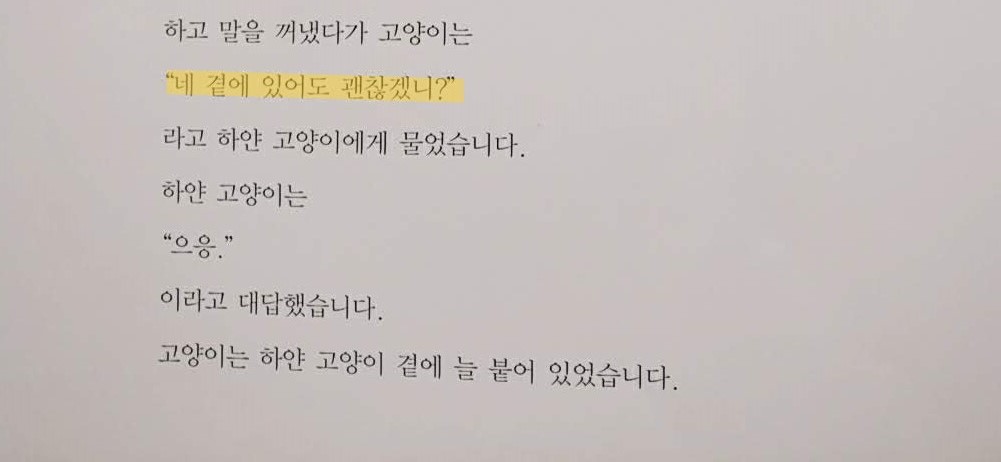 하고 말을 꺼냈다가 고양이는
“네 곁에 있어도 괜찮겠니?”
라고 하얀 고양이에게 물었습니다.
하얀 고양이는
“으응.”
이라고 대답했습니다.
고양이는 하얀 고양이 곁에 늘 붙어 있었습니다.